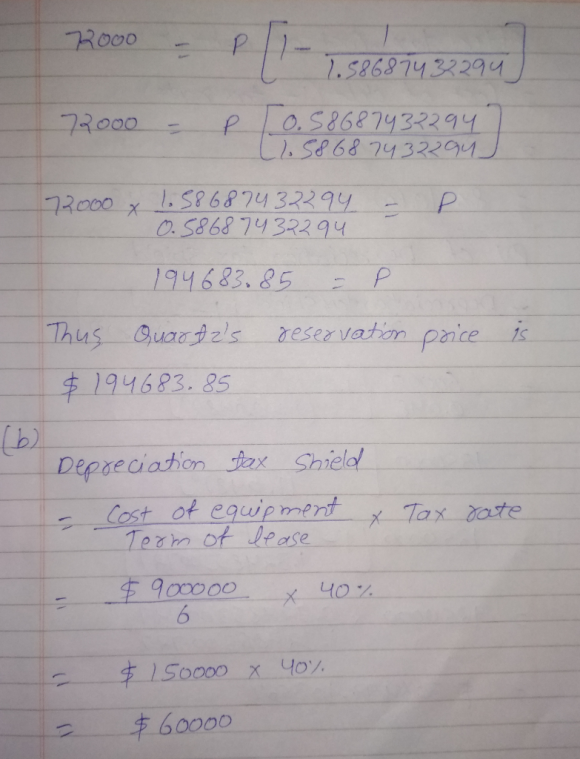 72000 = P [1 - 1 / 1.58687432294]
72000 = P [0.58687432294 / 1.58687432294]
72000 x 1.58687432294 / 0.58687432294 = P
194683.85 = P
Thus Quartz's reservation price is
$ 194683.85
(b)
Depreciation tax Shield
= Cost of equipment / Term of lease x Tax rate
= $ 900000 / 6 x 40%
= $ 150000 x 40%
= $ 60000